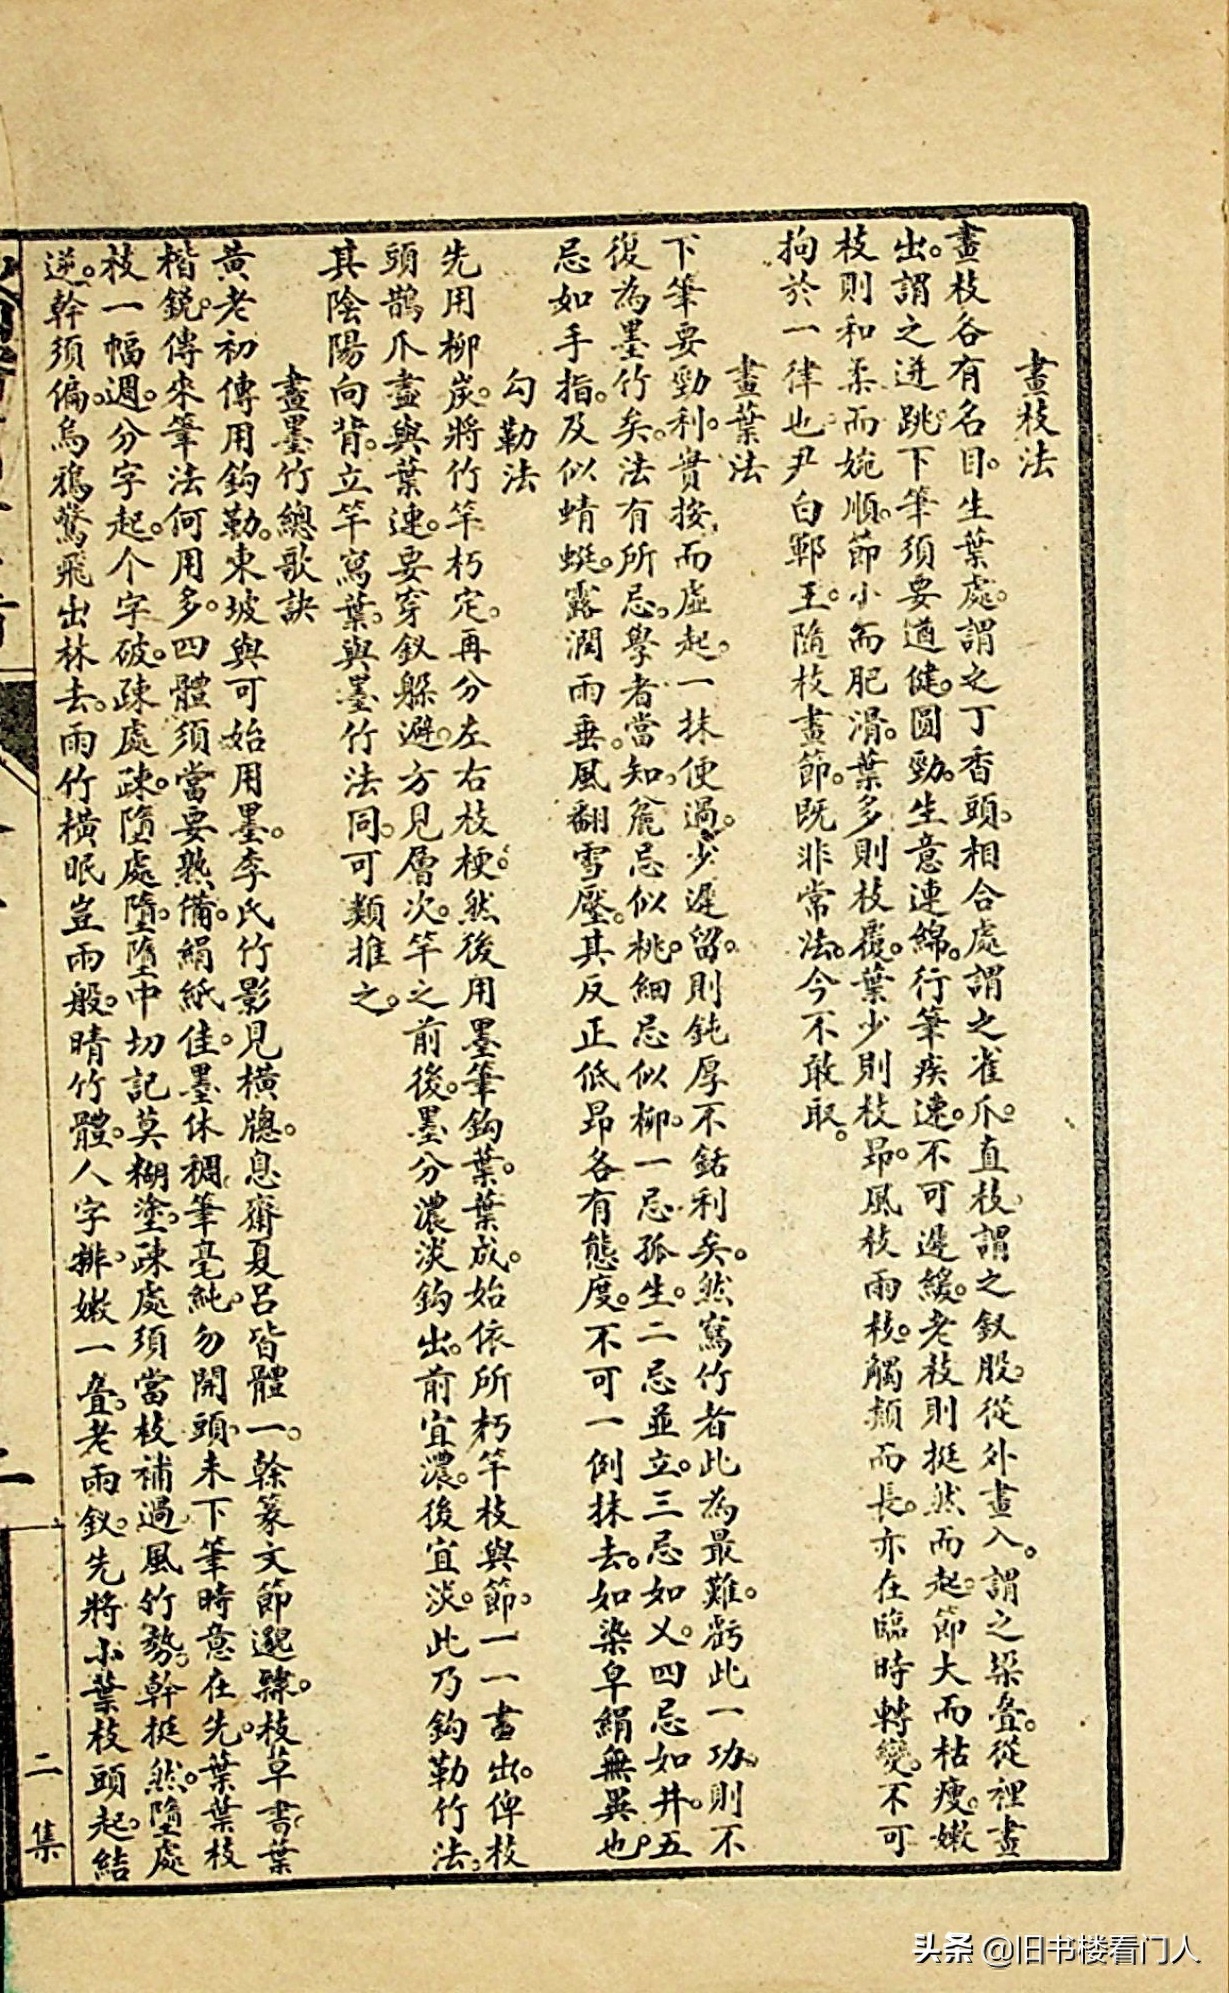 畫枝法
畫枝各有名目。生葉處。謂之丁香頭。相合處謂之雀爪。直枝。謂之釵股。從外畫入。謂之垜疊。從裡畫
出。謂之迸跳。下筆須要遒健。圓勁。生意連綿。行筆疾速。不可遲緩。老枝則挺然而起。節大而枯瘦。嫩
枝則和柔而婉順。節小而肥滑。葉多則枝覆。葉少則枝昂。風枝雨枝。觸類而長。亦在臨時轉變。不可
拘於一律也。尹白鄆王。隨枝畫節。既非常法。今不敢取。
畫葉法
下筆要勁利。實按而虛起。一抹便過。少遲留。則鈍厚不銛利矣。然寫竹者此為最難。虧此一功。則不
復為墨竹矣。法有所忌。學者當知。麄忌似桃。細忌似柳。一忌孤生。二忌並立。三忌如乂。四忌如井。五
忌如手指。及似蜻蜓。露潤雨垂。風翻雪壓。其反正低昂各有態度。不可一例抹去。如染皁絹無異也。
勾勒法
先用柳炭。將竹竿朽定。再分左右枝梗。然後用墨筆鈎葉。葉成。始依所朽竿枝與節。一一畫出。俾枝
頭鵲爪盡與葉連。要穿釵躲避。方見層次。竿之前後。墨分濃淡鈎出。前宜濃。後宜淡。此乃鈎勒竹法。
其陰陽向背。立竿寫葉。與墨竹法同。可類推之。
畫墨竹總歌訣
黃老初傳用鈎勒。東坡與可始用墨。李氏竹影見橫牕。息齋夏呂皆體一。榦篆文節邈隸。枝草書葉
楷銳。傳來筆法何用多。四體須當要熟備。絹紙佳。墨休稠。筆毫純。勿開頭。未下筆時意在先。葉葉枝
枝一幅週。分字起。个字破。疎處疎。墮處墮。墮中切記莫糊塗。疎處須當枝補過。風竹勢。幹挺然。墮處
逆。幹須偏。烏鴉驚飛出林去。雨竹橫眠豈雨般。晴竹體。人字排。嫩一疊。老雨釵。先將小葉枝頭起。結
二集
头条 @旧书楼看门人